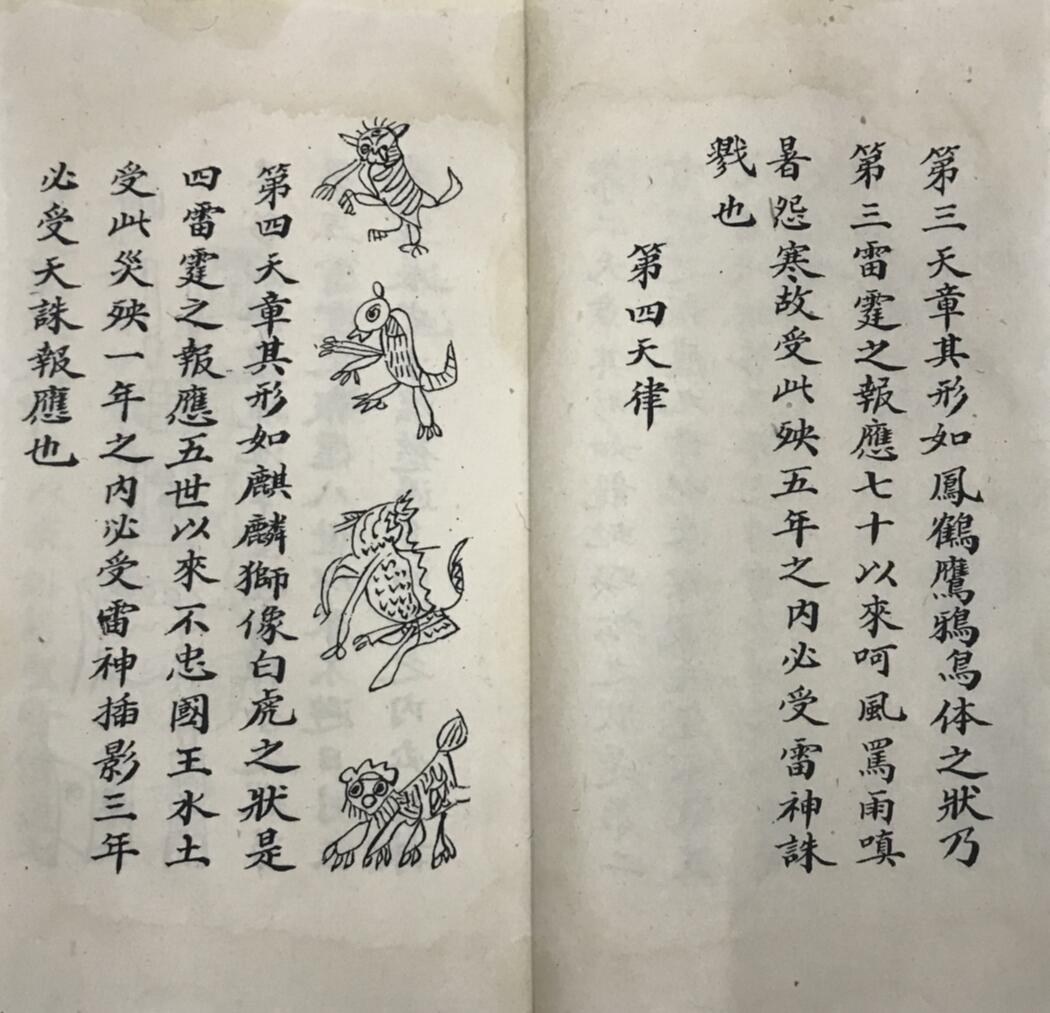 第三天章其形如鳳鶴鷹鴉鳥体之狀乃
第三雷霆之報應七十以來呵風罵雨嗔
暑怨寒故受此殃五年之内必受雷神誅
戮也
第四天律
第四天章其形如麒麟獅像白虎之狀是
四雷霆之報應五世以來不忠國王水土
受此災殃一年之内必受雷神插影三年
必受天誅報應也